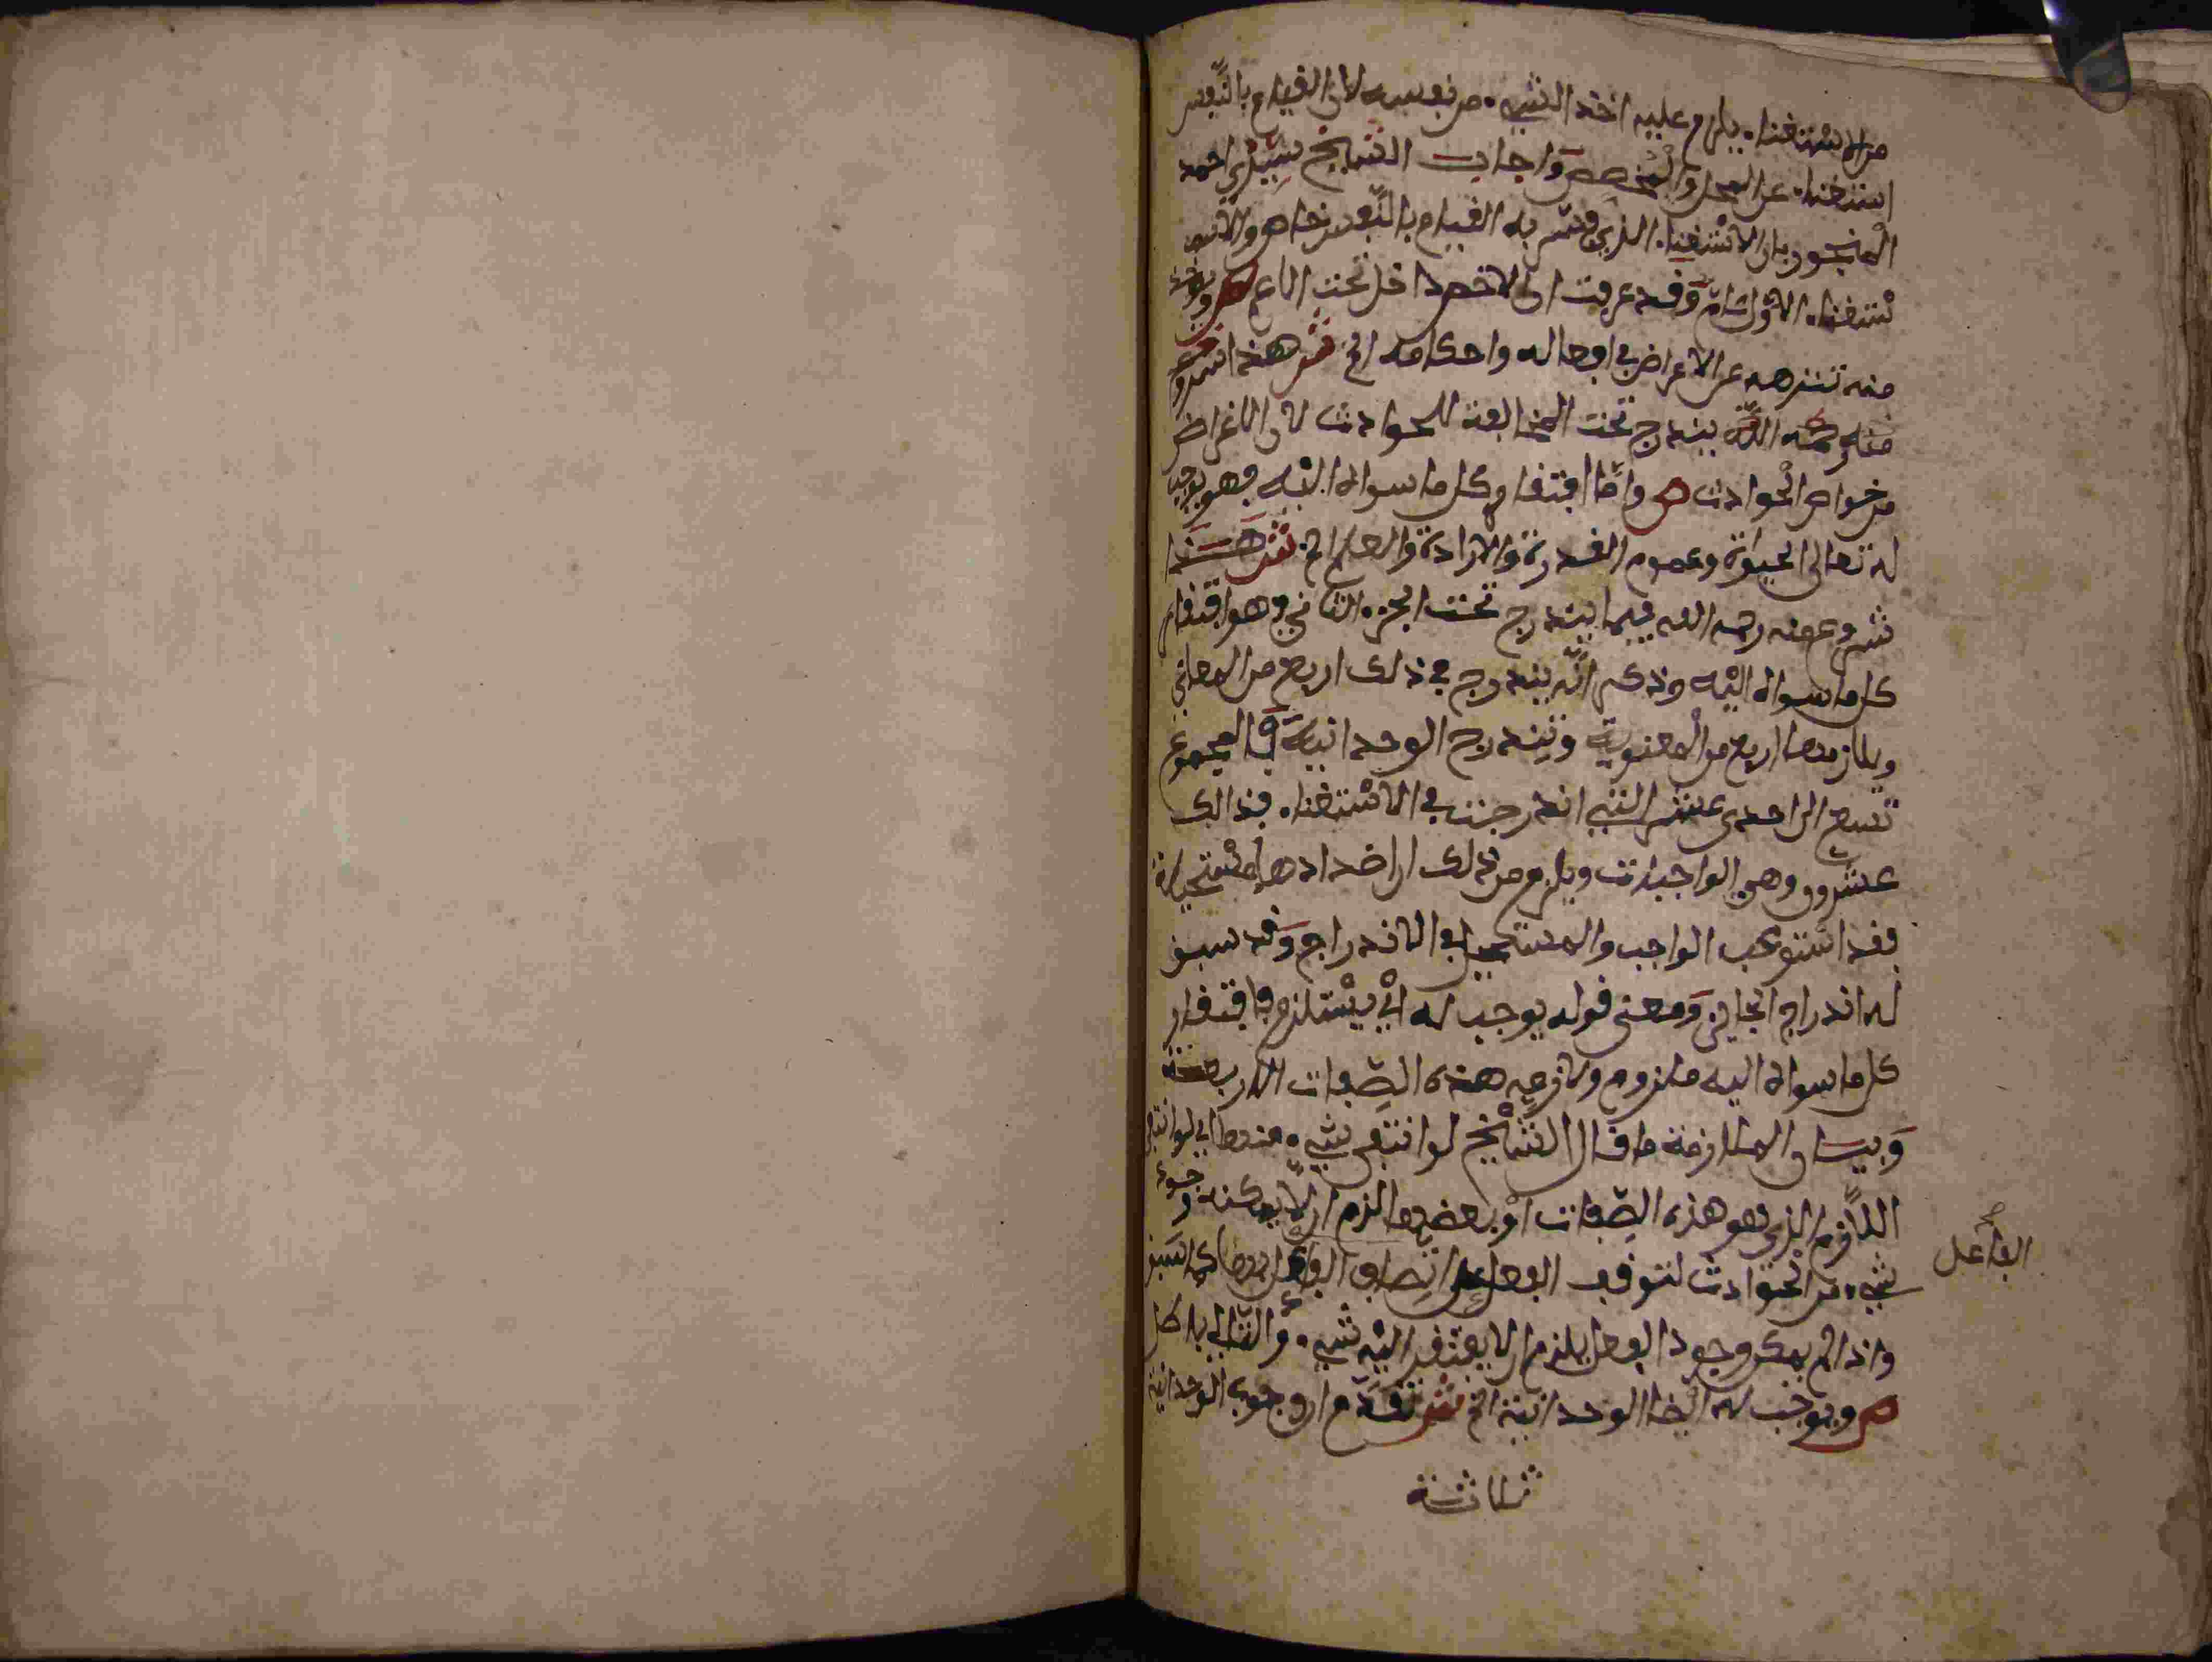 من الاستغناء يلزم عليه اخذ الشيء من نفسه لان القيام بالنّفس
استغناء عن المحل والمخصص وَاجاب الشيخ سيّدي احمد
المنجور بان الاستغناء الذي فسّر به القيام بالنّفس خاص والا
ستغناء الاوّل عامّ وَقد عرفت ان الاخص داخل تحت الاعم ص ويوخذ
منه تنزهه عن الاغراض في افعاله واحكامه الخ ش هذا شروع
منه رحمه اللّه يندرج تحت المخالفة للحوادث لان الاغراض
من خواص الحوادث ص وامّا افتقار كل ما سواه اليْه فهو يوجب
له تعالى الحيوة وعموم القدرة والارادة والعلم الخ ش هَـذا
شروع منه رحمه الله فيما يندرج تحت الجزء الثاني وهو افتقار
كل ما سواه اليْه وذكر انّه يندرج في ذلك اربع من المعاني
ويلازمها اربع من المعنوية وتندرج الوحدانية في المجموع
تسع الى احدى عشر التي اندرجت في الاستغناء فذالك
عشرون وهي الواجبات ويلزم من ذلك ان اضدادها مستحيلة
فقد استوعب الواجب والمستحيل في الاندراج وَقد سبق
له اندراج الجائز وَمعنى قوله يوجب له ايْ يستلزم فافتقار
كل ما سواه اليه ملزوم ولازمه هذه الصّفات الاربعة
وَبيان الملازمة ما قال الشيْخ لو انتفى شيء منها اي لو انتفى
اللّازم الذي هو هذه الصّفات اوْ بعضها لزم ان لّا يمكنه وجود
شيء من الحوادث لتوقف الفعل على اتّصاف الفاعل بها كما سبق
الفاعل صح
واذا لم يمكن وجود الفعل يلزم ان لا يفتقر اليْه شيء وَالتّالي باطل
ص ويوجب له ايْضا الوحدانية الخ ش تقدّم ان وجوب الوحدانية
ثلاثة